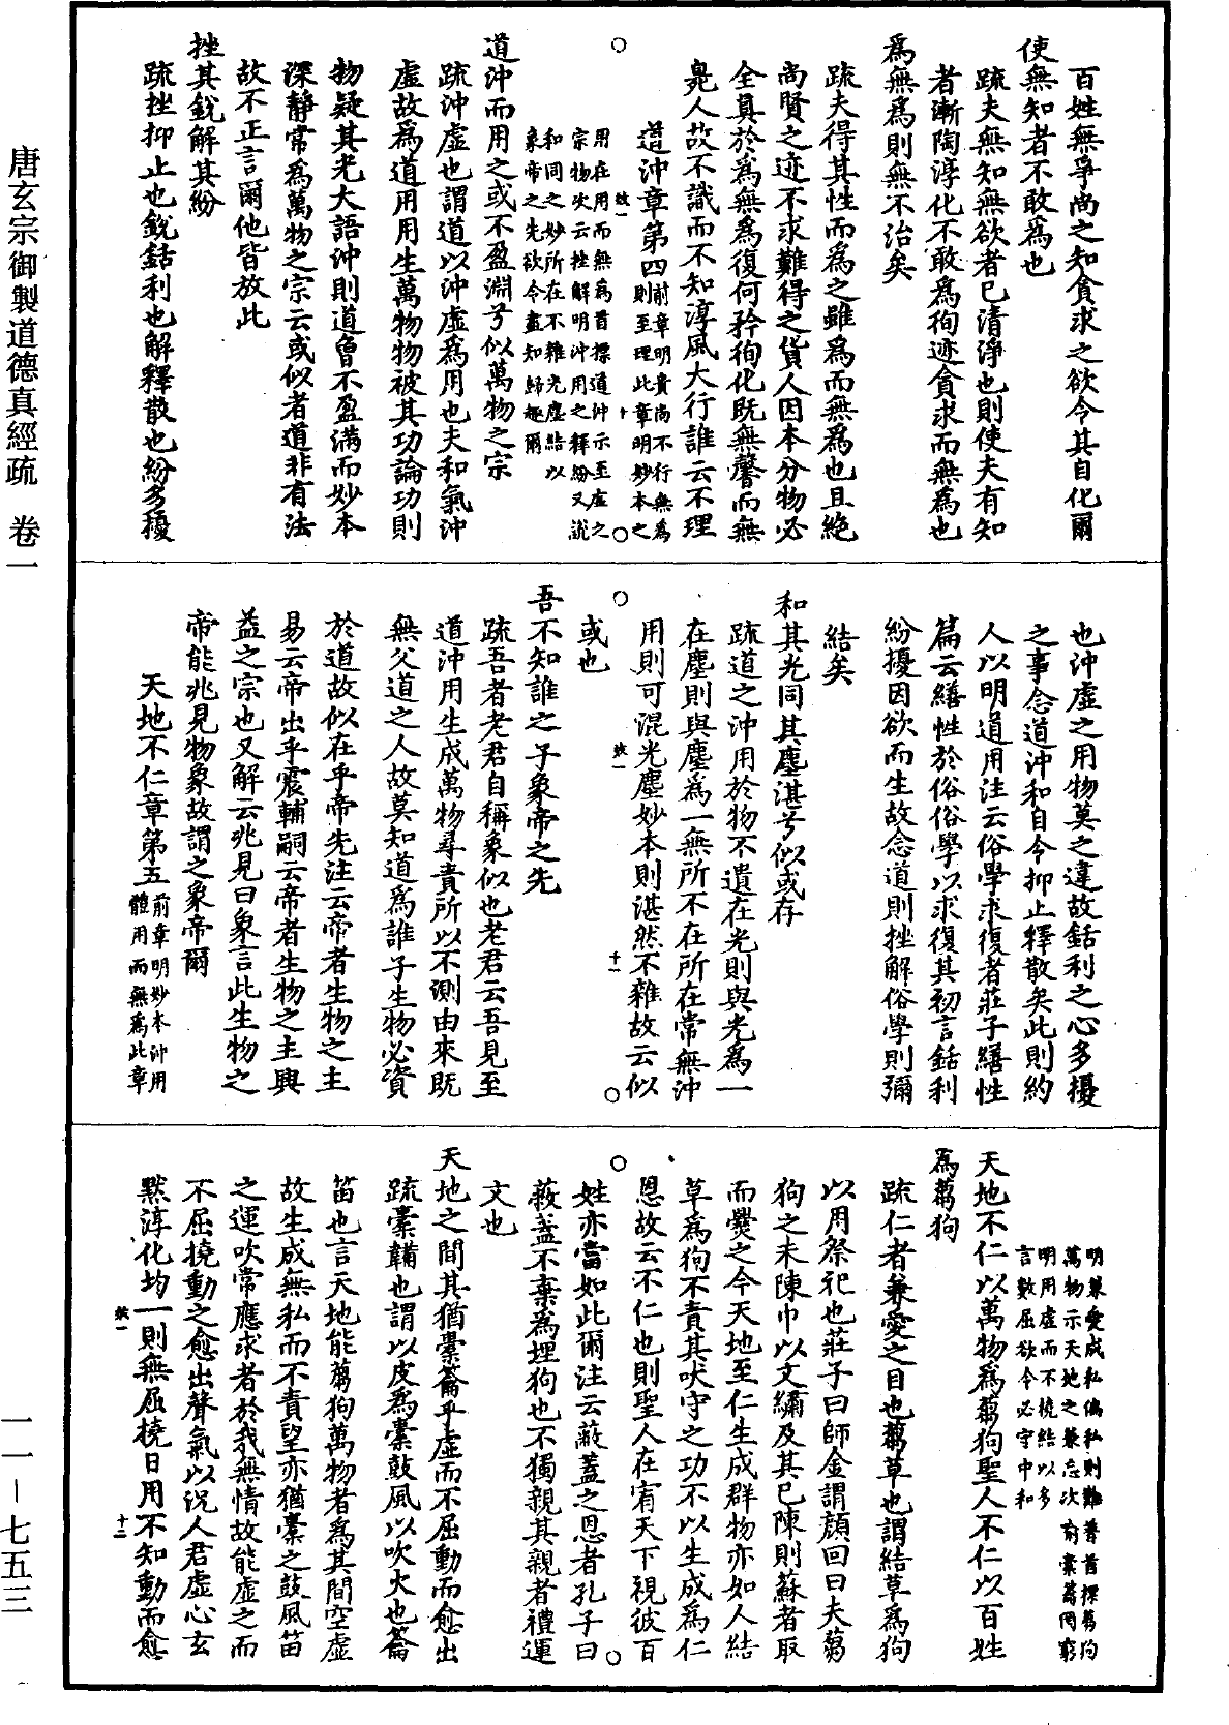 百姓無爭尚之知貪求之欲令其自化爾
使無知者不敢為也
疏夫無知無欲者已清淨也則使夫有知
者漸陶淳化不敢為徇迹貪求而無為也
為無為則無不治矣
疏夫得其性而為之雖為而無為也且絕
尚賢之迹不求難得之貨人因本分物必
全真於為無為復何矜徇化既無馨而無
臭人故不識而不知淳風大行誰云不理
道沖章第四
前章明貴尚不行無為
則至理此章明妙本之
效一
十
用在用而無為首標道沖示至虛之
宗物次云挫解明沖用之釋紛又說
和同之妙所在不雜光塵結以
象帝之先欲令盡知歸趣爾
道沖而用之或不盈淵兮似萬物之宗
疏沖虛也謂道以沖虛為用也夫和氣沖
虛故為道用用生萬物物被其功論功則
物疑其光大語沖則道曾不盈滿而妙本
深靜常為萬物之宗云或似者道非有法
故不正言爾他皆放此
挫其銳解其紛
疏挫抑止也銳銛利也解釋散也紛多擾
也沖虛之用物莫之違故銛利之心多擾
之事念道沖和自令抑止釋散矣此則約
人以明道用注云俗學求復者莊子繕性
篇云繕性於俗俗學以求復其初言銛利
紛擾因欲而生故念道則挫解俗學則彌
結矣
和其光同其塵湛兮似或存
疏道之沖用於物不遺在光則與光為一
在塵則與塵為一無所不在所在常無沖
用則可混光塵妙本則湛然不雜故云似
效一
十一
或也
吾不知誰之子象帝之先
疏吾者老君自稱象似也老君云吾見至
道沖用生成萬物尋責所以不測由來既
無父道之人故莫知道為誰子生物必資
於道故似在乎帝先注云帝者生物之主
易云帝出乎震輔嗣云帝者生物之主興
益之宗也又解云兆見曰象言此生物之
帝能兆見物象故謂之象帝爾
天地不仁章第五
前章明妙本沖用
體用而無為此章
明兼愛成私偏私則難普首標芻狗
萬物示天地之兼忘次喻橐籥罔窮
明用虛而不撓結以多
言數屈欲令必守中和
天地不仁以萬物為芻狗聖人不仁以百姓
為芻狗
疏仁者兼愛之目也芻草也謂結草為狗
以用祭祀也莊子曰師金謂顏回曰夫芻
狗之未陳巾以文繡及其已陳則蘇者取
而爨之今天地至仁生成群物亦如人結
草為狗不責其吠守之功不以生成為仁
恩故云不仁也則聖人在宥天下視彼百
姓亦當如此爾注云蔽蓋之恩者孔子曰
蔽蓋不棄為埋狗也不獨親其親者禮運
文也
天地之間其猶橐籥乎虛而不屈動而愈出
疏橐韛也謂以皮為橐鼓風以吹火也籥
笛也言天地能芻狗萬物者為其間空虛
故生成無私而不責望亦猶橐之鼓風笛
之運吹常應求者於我無情故能虛之而
不屈撓動之愈出聲氣以況人君虛心玄
默淳化均一則無屈撓日用不知動而愈
效一
十二
唐玄宗御製道德真經疏　卷一
一一－七五三